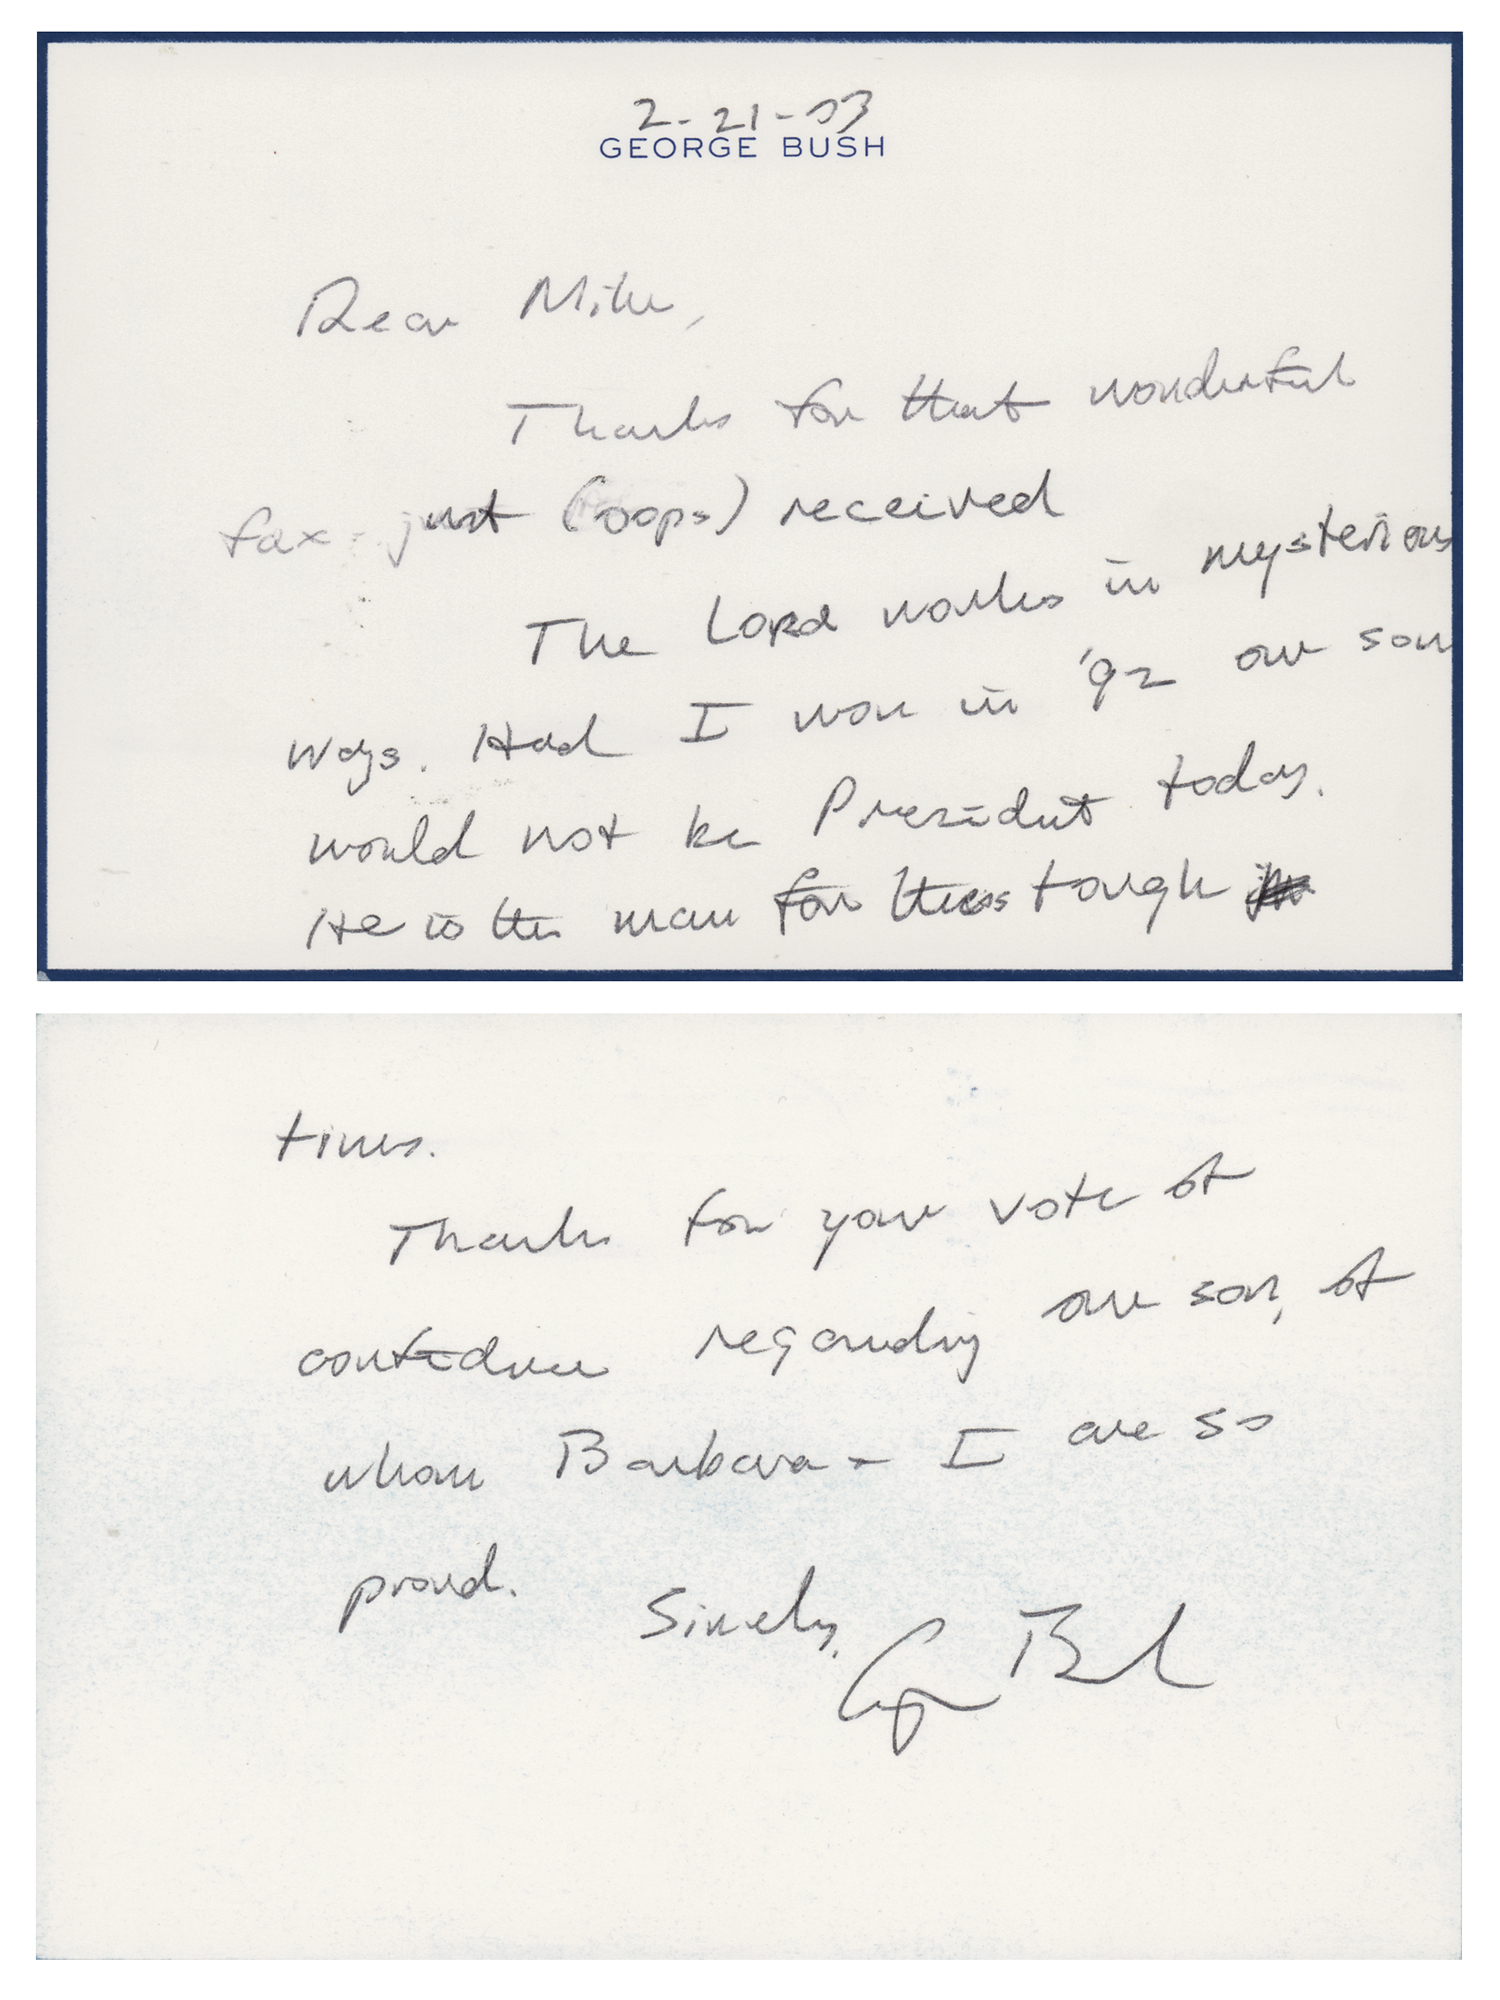 2-21-03
GEORGE BUSH
Dear Mike,
Thanks for that wonderful
fax - just (oops) received
The Lord works in mysterious
ways. Had I won in '92 our son
would not be President today.
He is the man for these tough
times.
Thanks for your vote of
confidence regarding our son, of
whom Barbara + I are so
proud.
Sincerely,
George Bush